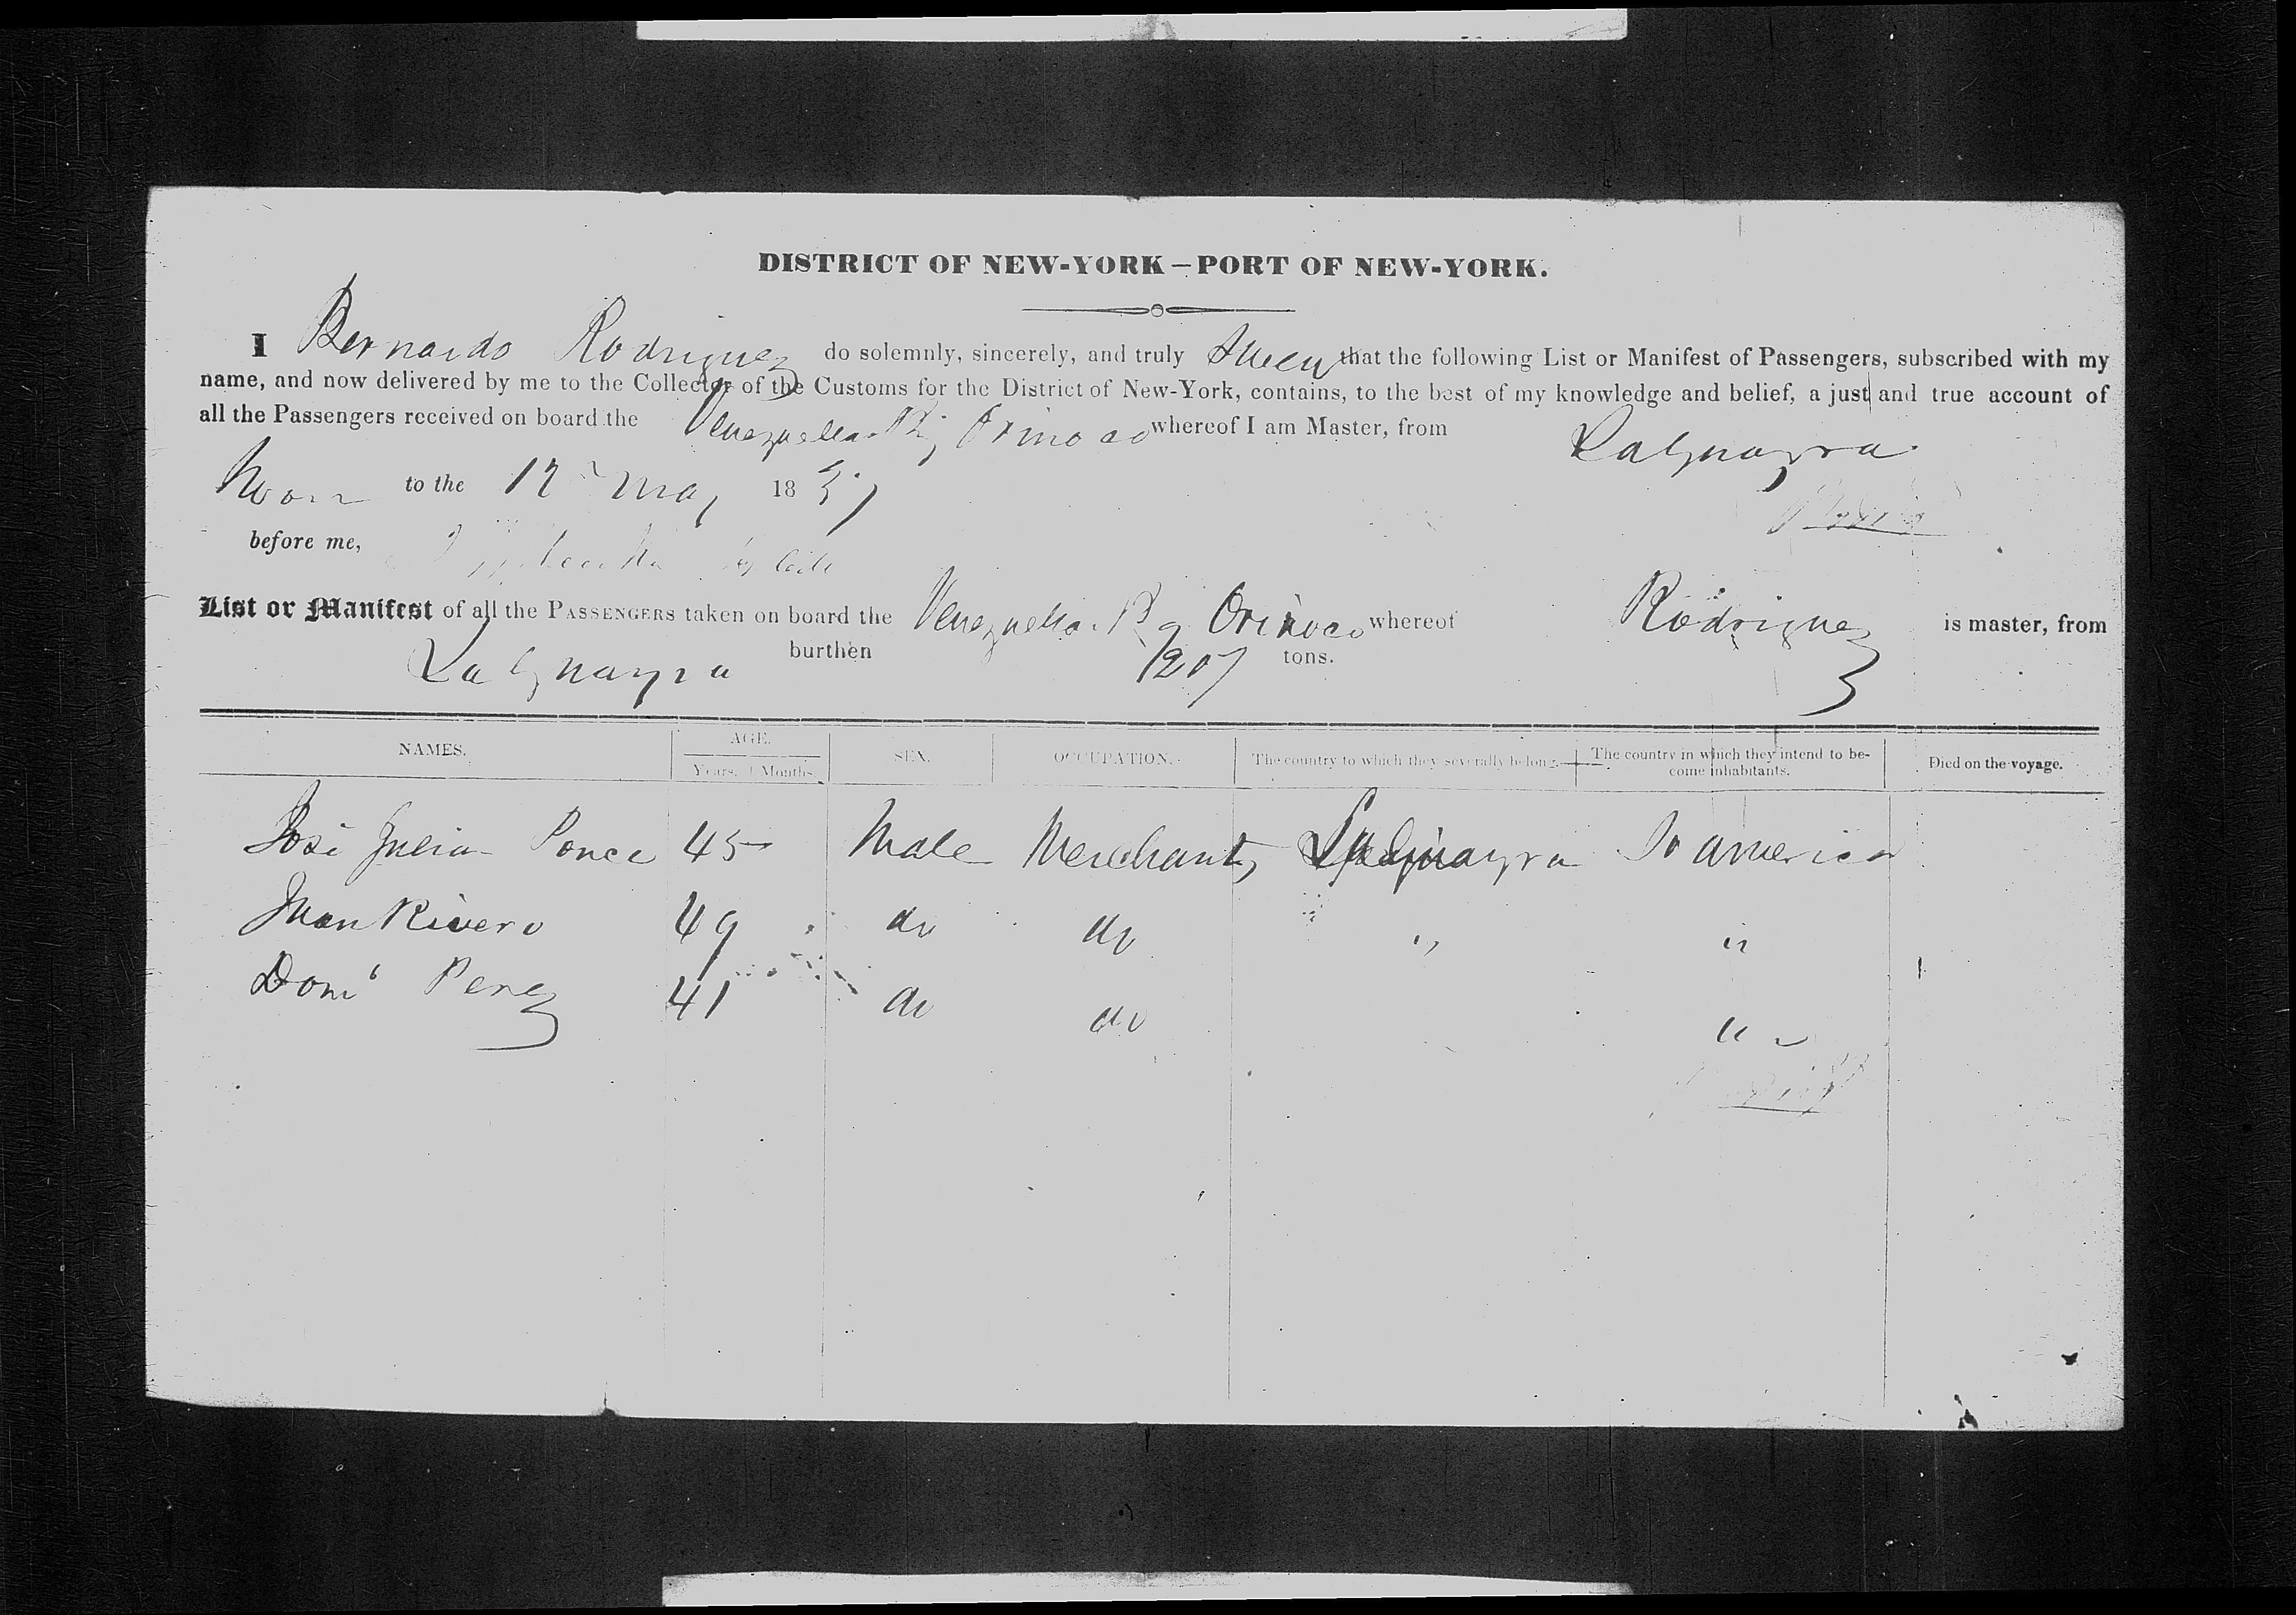 DISTRICT OF NEW-YORK – PORT OF NEW-YORK.
I Bernardo Rodriguez do solemnly, sincerely, and truly Swear that the following List or Manifest of Passengers, subscribed with my
name, and now delivered by me to the Collector of the Customs for the District of New-York, contains, to the best of my knowledge and belief, a just and true account of
all the Passengers received on board the Venezuelan Brig Orinoco whereof I am Master, from LaGuayra
to the 12 May 18
before me,
List or Manifest of all the PASSENGERS taken on board the Venezuelan Brg Orinoco whereof Rodriguez is master, from
LaGuayra burthen 207 tons.
NAMES. AGE. SEX. OCCUPATION. The country to which they severally belong. The country in which they intend to be-
Years. Months. come inhabitants. Died on the voyage.
José Julian Ponce 45 Male Merchant LaGuayra So america
Juan Rivero 49 do do " "
Dom° Perez 41 do do "